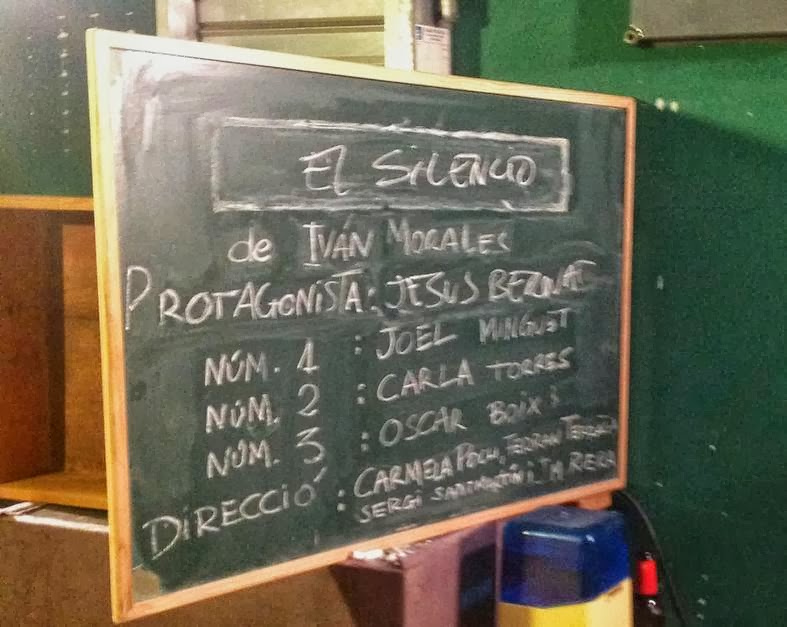 El SilENCiO
de IVÁN MORALES
PROTAGONISTA: JESUS BERNAT
NÚM. 1 : JOEL MINGUET
NÚM. 2 : CARLA TORRES
NÚM. 3 : OSCAR BOIX i
DiRECCió : CARMELA POCH, FERRAN
SERGI SANTMARTÍN i